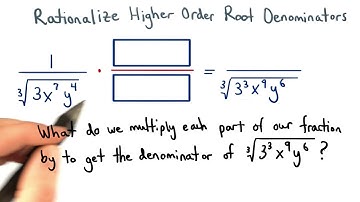 Rationalize Higher Order Root Denominators
1/∛(3x⁷y⁴) · = /∛(3³x⁹y⁶)
What do we multiply each part of our fraction
by to get the denominator of ∛(3³x⁹y⁶) ?